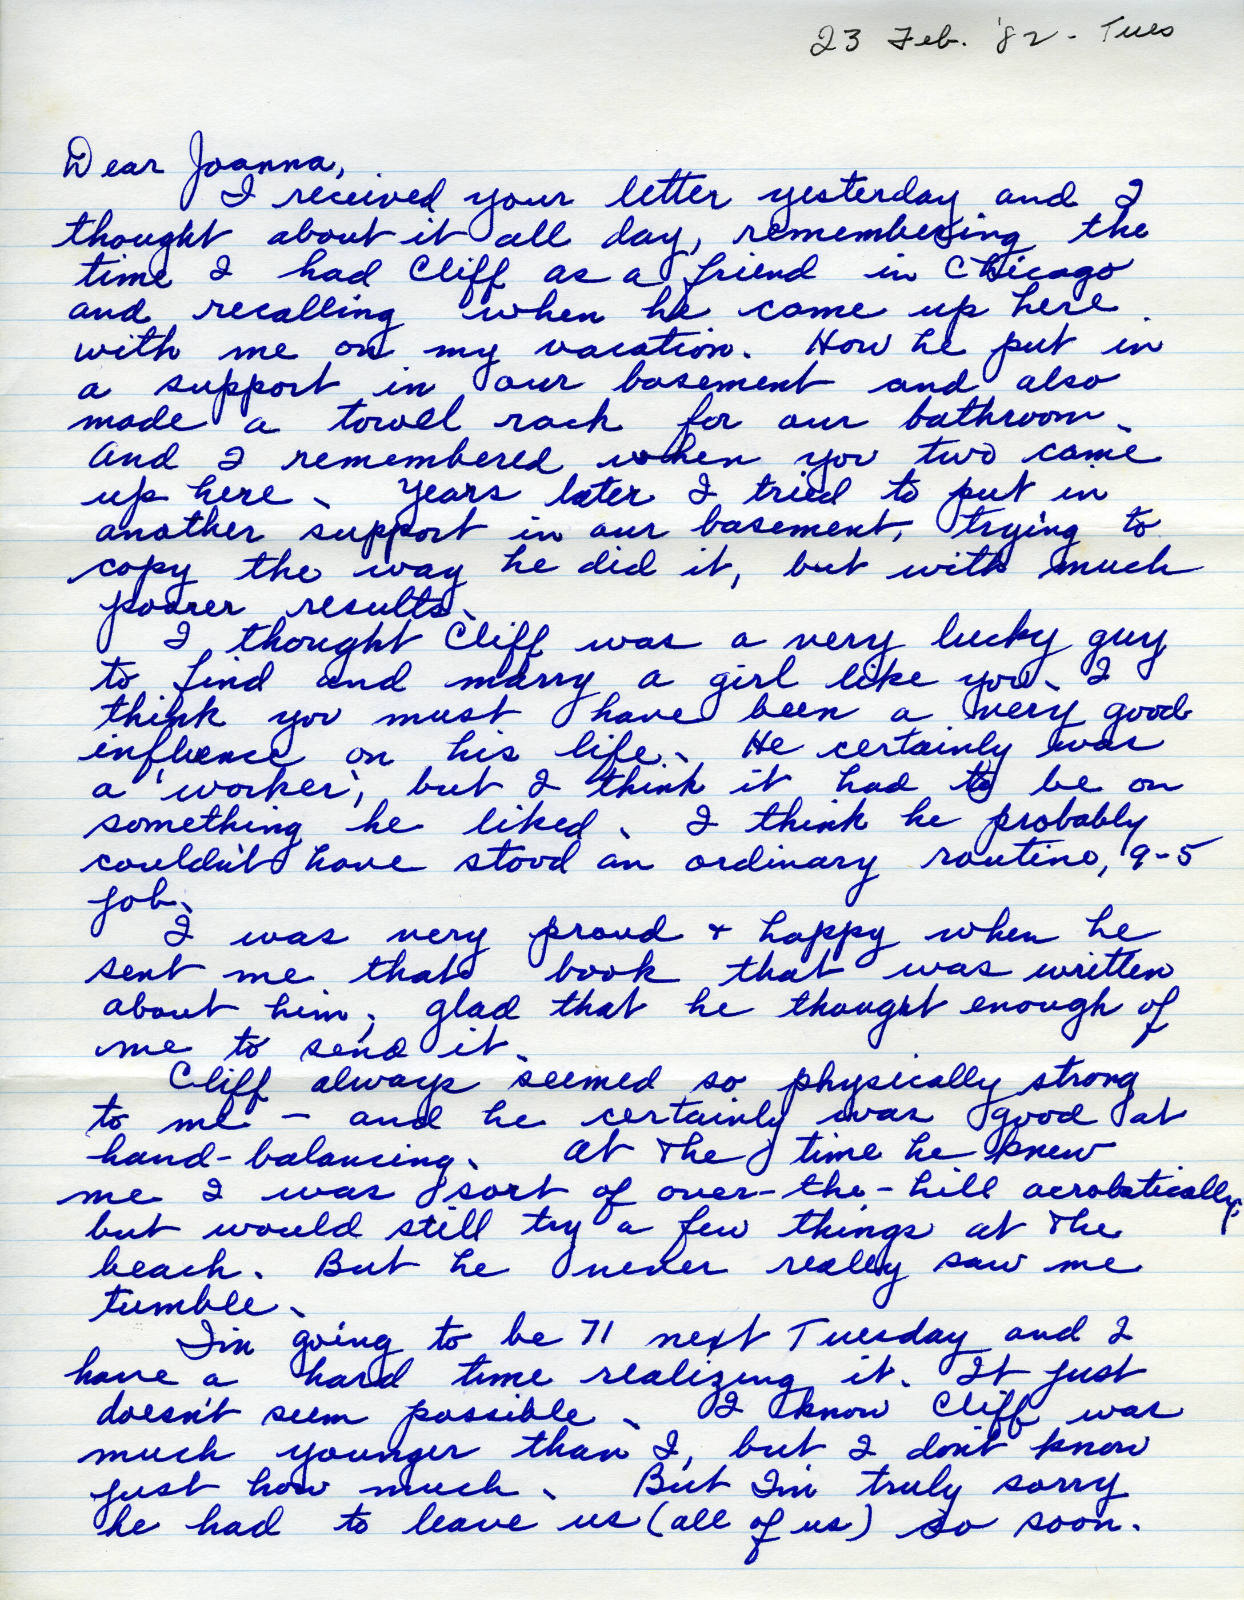 23 Feb. '82 - Tues
Dear Joanna,
I received your letter yesterday and I
thought about it all day, remembering the
time I had Cliff as a friend in Chicago
and recalling when he came up here
with me on my vacation. How he put in
a support in our basement and also
made a towel rack for our bathroom.
And I remembered when you two came
up here. Years later I tried to put in
another support in our basement, trying to
copy the way he did it, but with much
poorer results.
I thought Cliff was a very lucky guy
to find and marry a girl like you. I
think you must have been a very good
influence on his life. He certainly was
a 'worker', but I think it had to be on
something he liked. I think he probably
couldn't have stood an ordinary routine, 9-5
job.
I was very proud + happy when he
sent me that book that was written
about him; glad that he thought enough of
me to send it.
Cliff always seemed so physically strong
to me - and he certainly was good at
hand-balancing. At the time he knew
me I was sort of over-the-hill acrobatically,
but would still try a few things at the
beach. But he never really saw me
tumble.
I'm going to be 71 next Tuesday and I
have a hard time realizing it. It just
doesn't seem possible. I know Cliff was
much younger than I, but I don't know
just how much. But I'm truly sorry
he had to leave us (all of us) so soon.